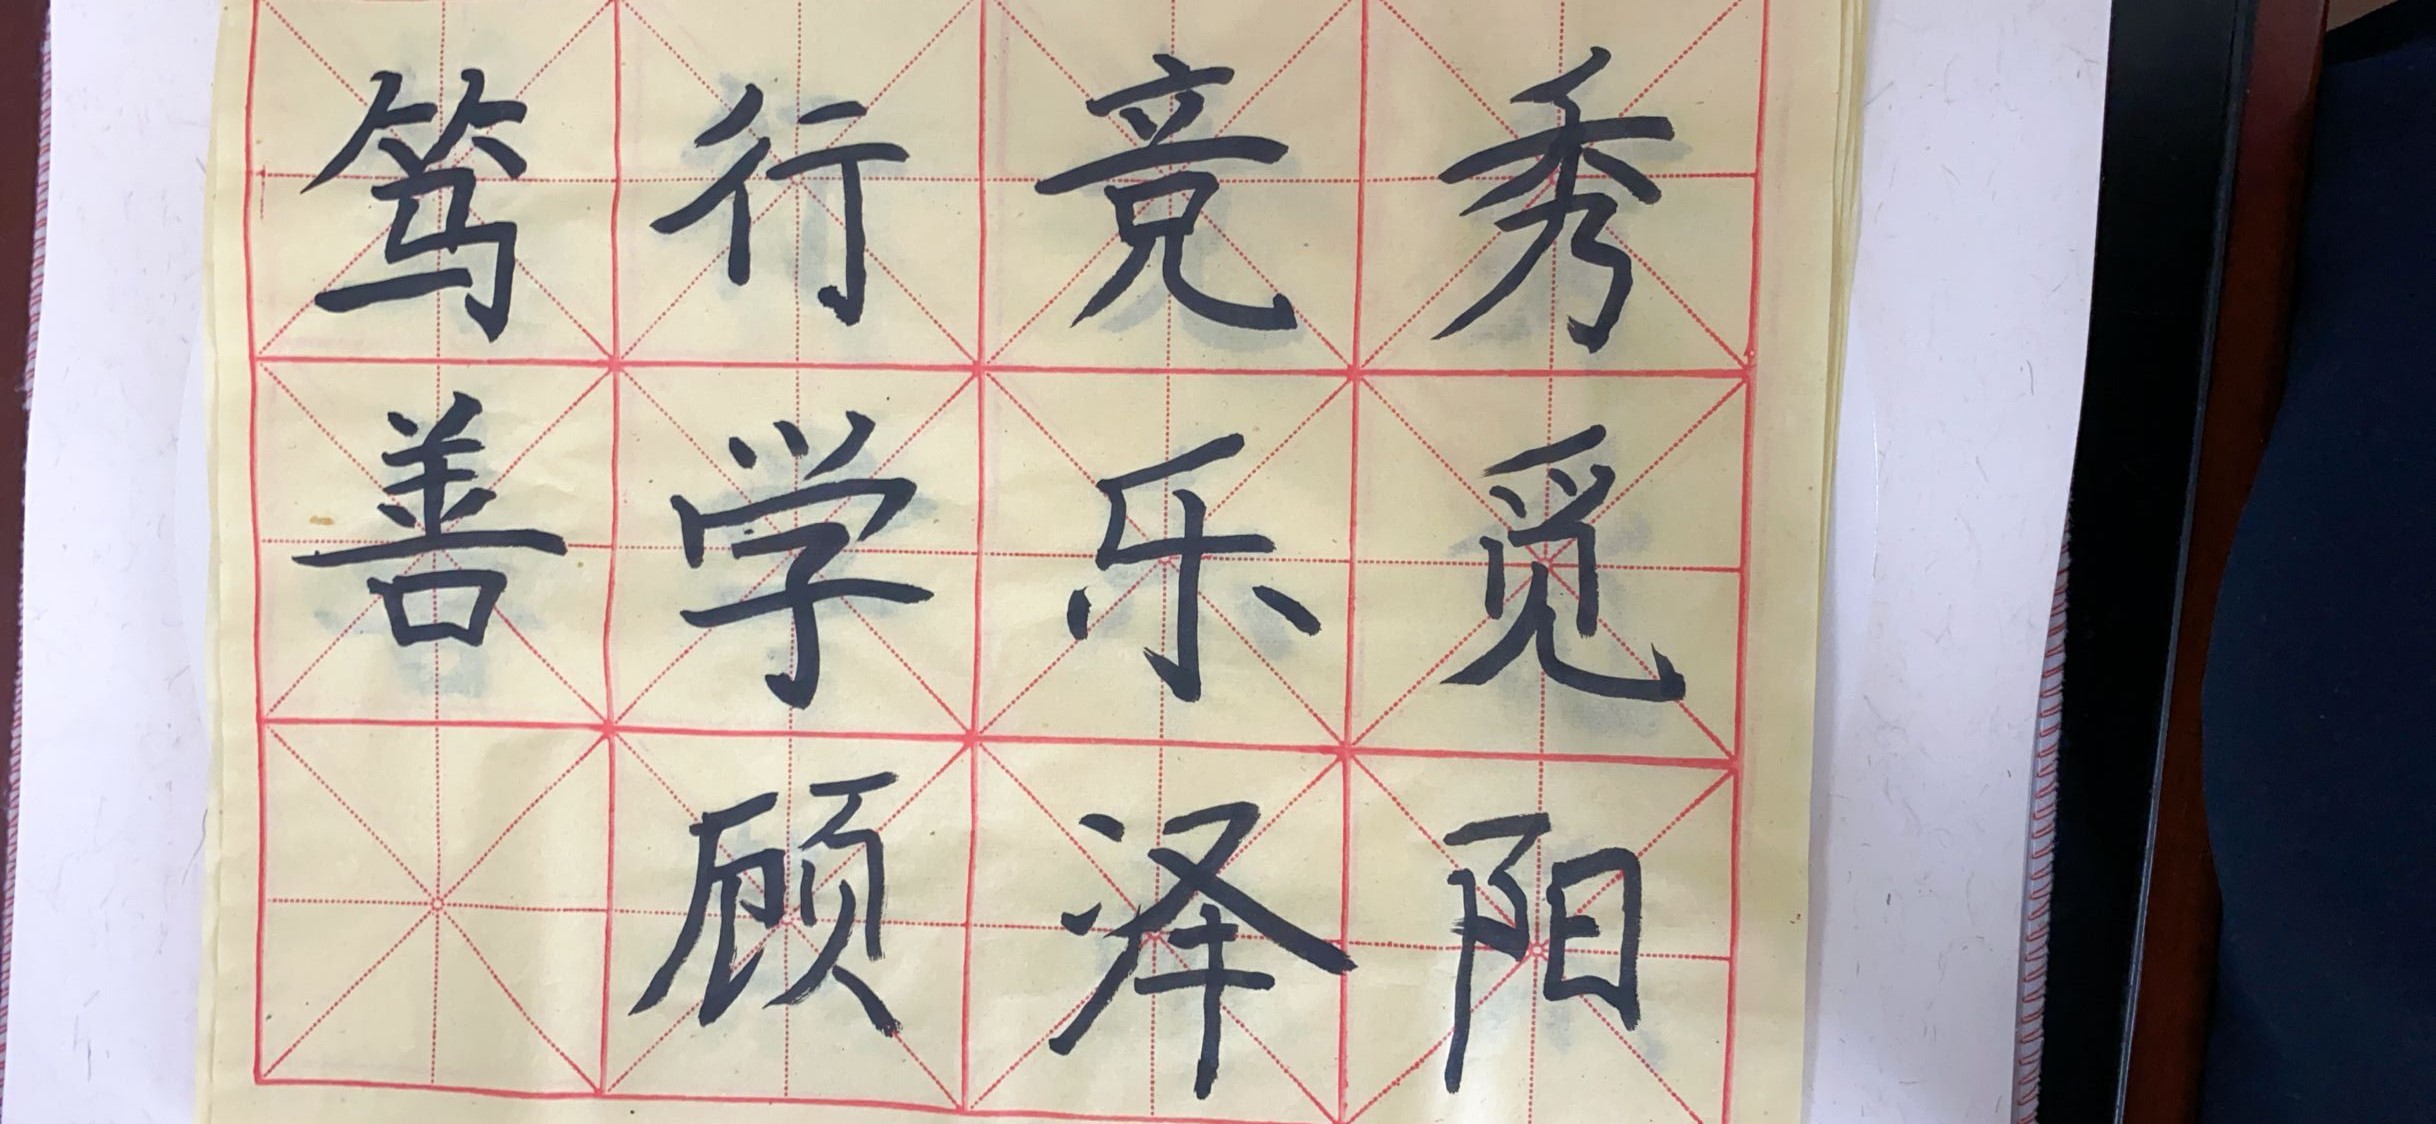 笃行竞秀
善学乐觅
顾泽阳